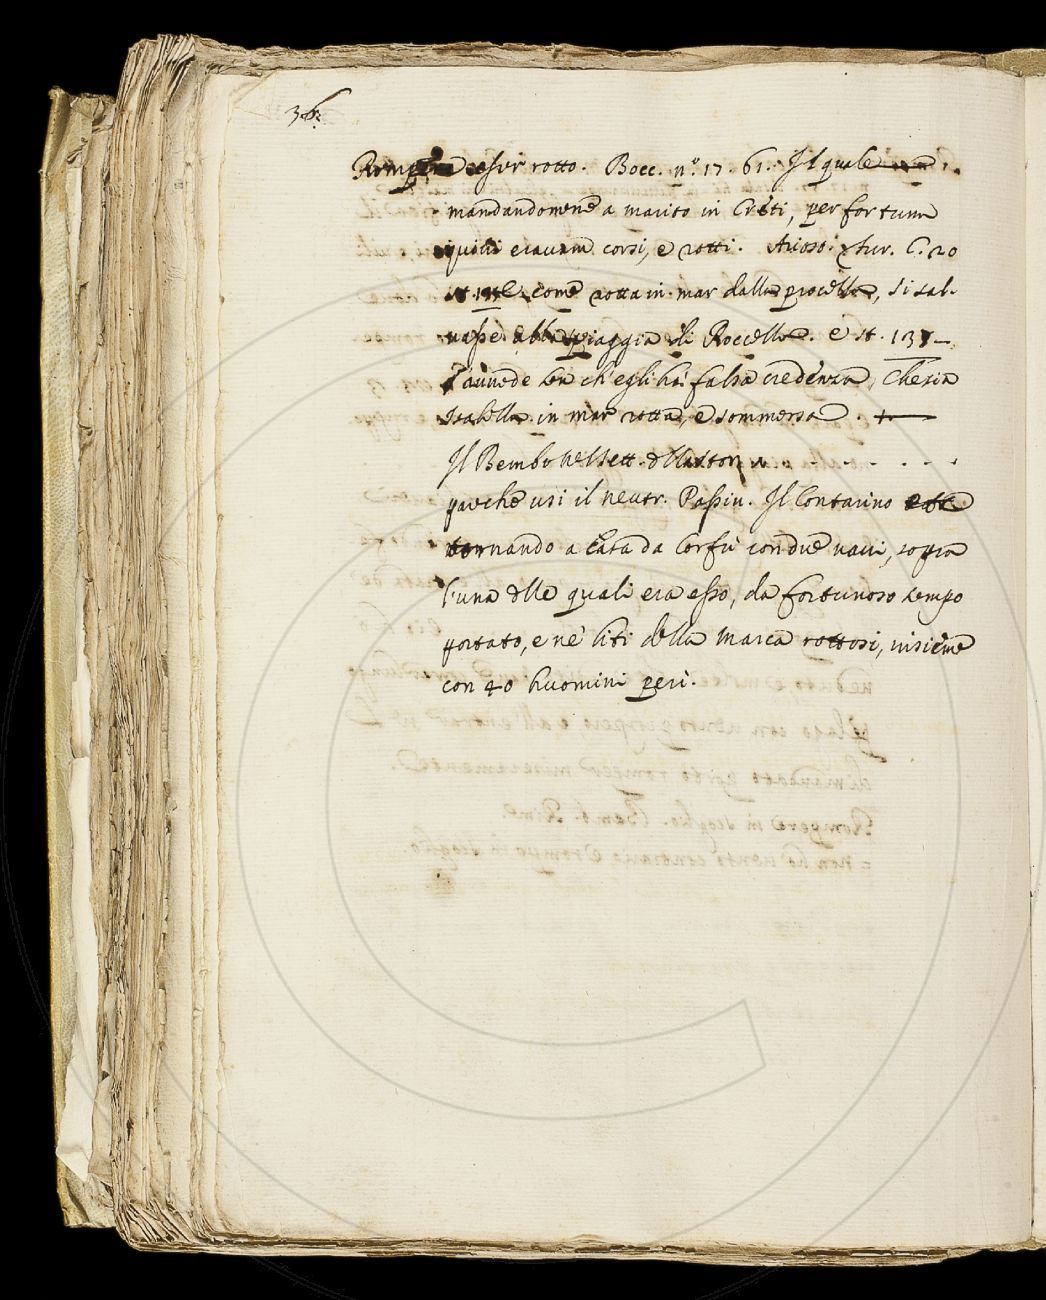 36.
Rompere esser rotto. Bocc. n.° 17. 61. Il quale
mandandomene a marito in Creti, per fortuna
quivi eravam corsi, e rotti. Ariosο. fur. C. 20
come rotta in mar dalla procella, si sal-
vasse alla spiaggia di Roccella. e st. 137
S'avvede ben ch'egli ha falsa credenza, Che sia
Isabella in mar rotta, e sommersa.
Il Bembo nel sett. dlla stor.
par che usi il neutr. Passiv. Il Contarino
tornando a Casa da Corfù con due navi, sopra
l'una dlle quali era esso, da fortunoso tempo
portato, e ne' liti della Marca rottosi, insieme
con 40 huomini perì.